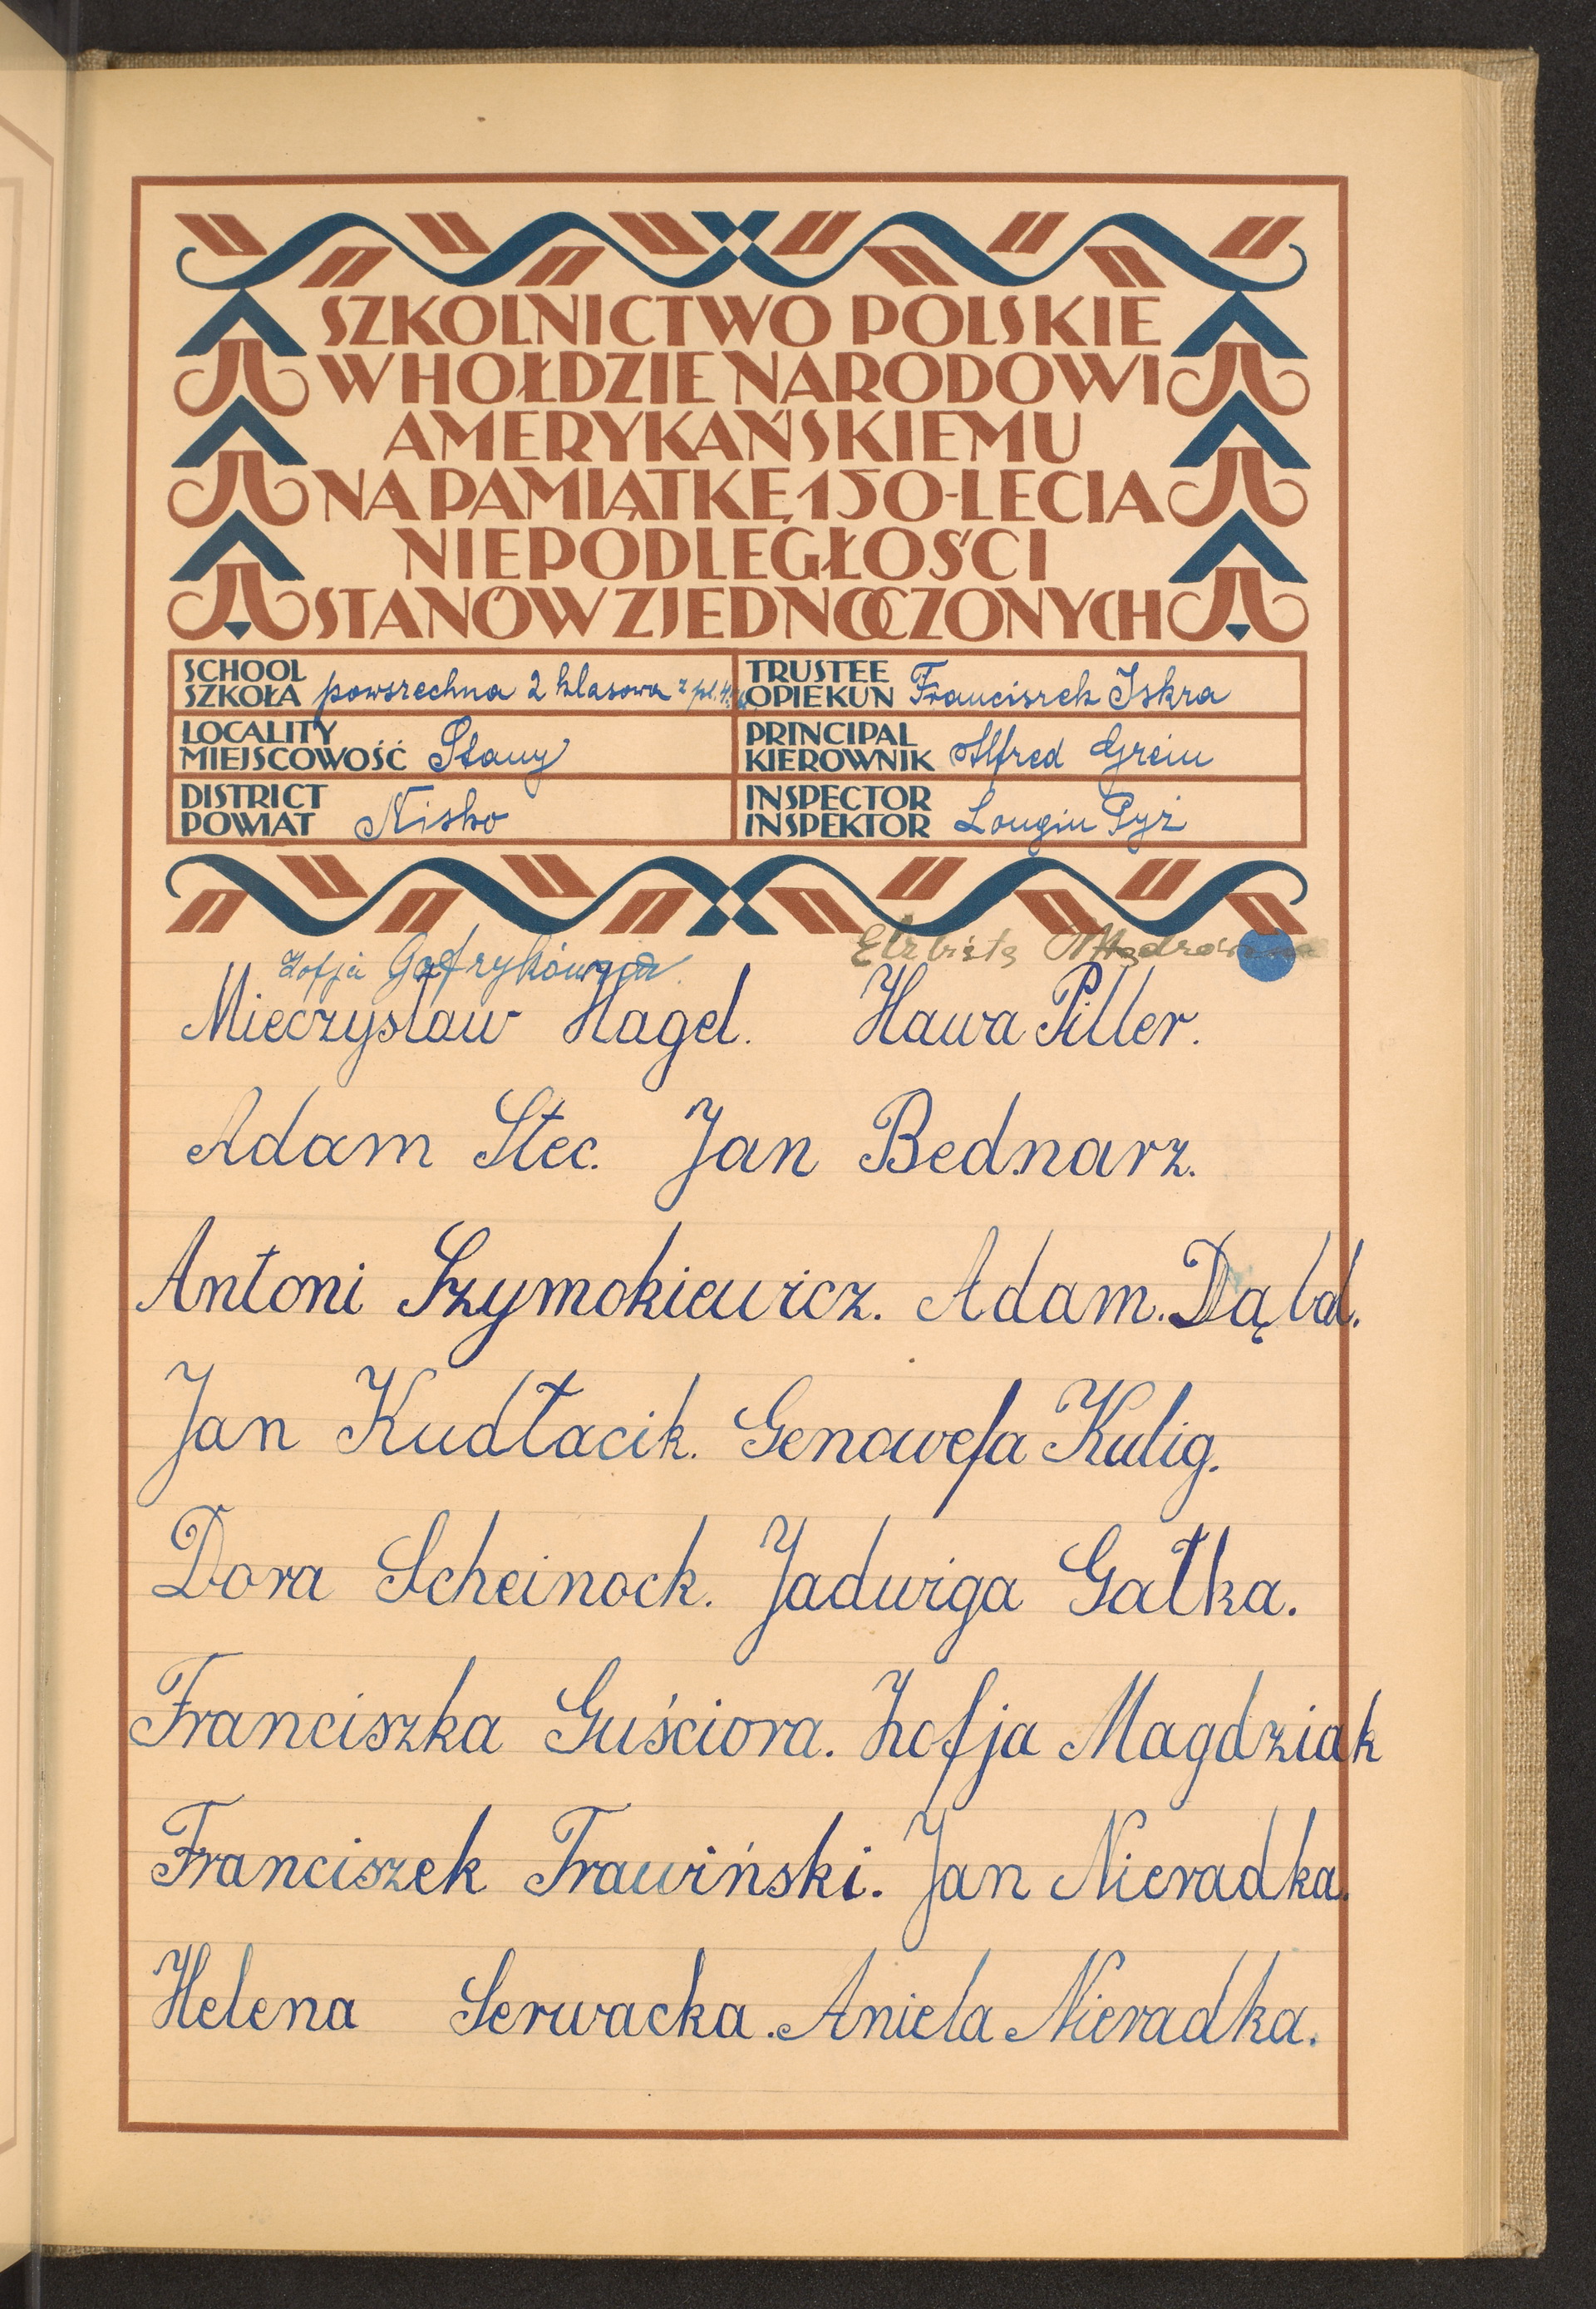 SZKOLNICTWO POLSKIE
W HOŁDZIE NARODOWI
AMERYKAŃSKIEMU
NA PAMIĄTKĘ 150-LECIA
NIEPODLEGŁOŚCI
STANÓW ZJEDNOCZONYCH
SCHOOL
SZKOŁA powszechna 2 klasowa z pl.
LOCALITY
MIEJSCOWOŚĆ Stany
DISTRICT
POWIAT Nisko
TRUSTEE
OPIEKUN Franciszek Iskra
PRINCIPAL
KIEROWNIK Alfred Grein
INSPECTOR
INSPEKTOR Longin Pyż
Zofja Elżbieta
Mieczysław Hagel. Hawa Piller.
Adam Stec. Jan Bednarz.
Antoni Szymokiewicz. Adam. Dąbal.
Jan Kudłacik. Genowefa Kulig.
Dora Scheinock. Jadwiga Gałka.
Franciszka Guściora. Zofja Magdziak
Franciszek Trawiński. Jan Nieradka.
Helena Serwacka. Aniela Nieradka.